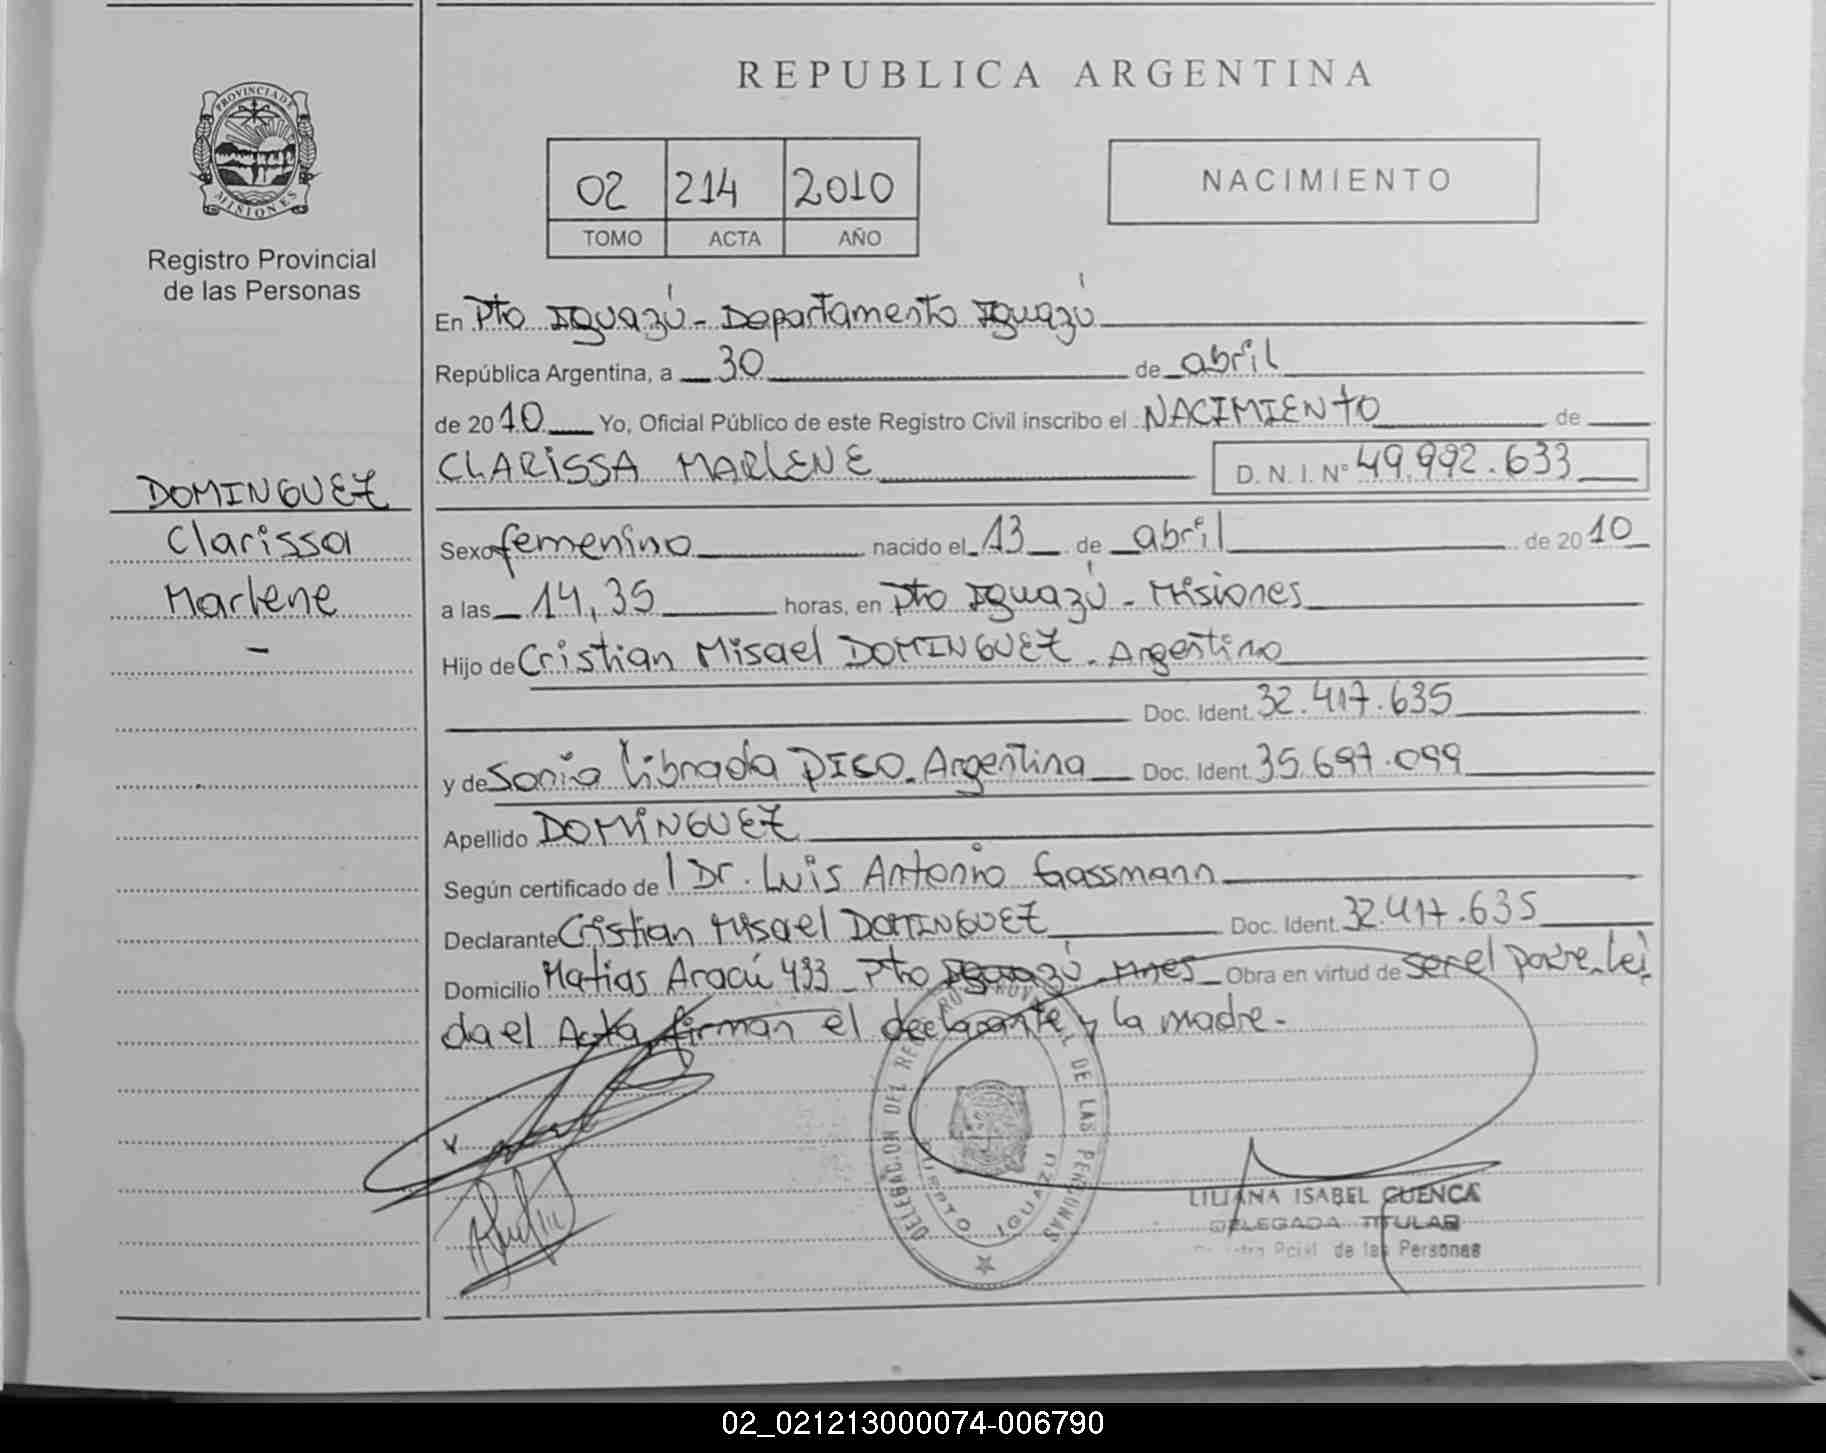 REPUBLICA ARGENTINA
PROVINCIA DE MISIONES
Registro Provincial
de las Personas
02 214 2010
TOMO ACTA AÑO
NACIMIENTO
En Pto Iguazú - Departamento Iguazú
República Argentina, a 30 de abril
de 2010 Yo, Oficial Público de este Registro Civil inscribo el NACIMIENTO de
CLARISSA MARLENE D. N. I. N° 49.992.633
DOMINGUEZ
Clarissa
Marlene
-
Sexo femenino nacido el 13 de abril de 2010
a las 14,35 horas, en Pto Iguazú - Misiones
Hijo de Cristian Misael DOMINGUEZ - Argentino
Doc. Ident. 32.417.635
y de Sonia Librada Argentina Doc. Ident. 35.697.099
Apellido DOMINGUEZ
Según certificado de l Dr. Luis Antonio Gassmann
Declarante Cristian Misael DOMINGUEZ Doc. Ident. 32.417.635
Domicilio Matias Aracú 433 - Pto Iguazú - Mnes Obra en virtud de ser el padre. Leí
da el Acta, firman el declarante y la madre.-
DELEGACION DEL REGISTRO PROVINCIAL DE LAS PERSONAS
PUERTO IGUAZU
LILIANA ISABEL CUENCA
DELEGADA TITULAR
Pcial de las Personas
02_021213000074-006790